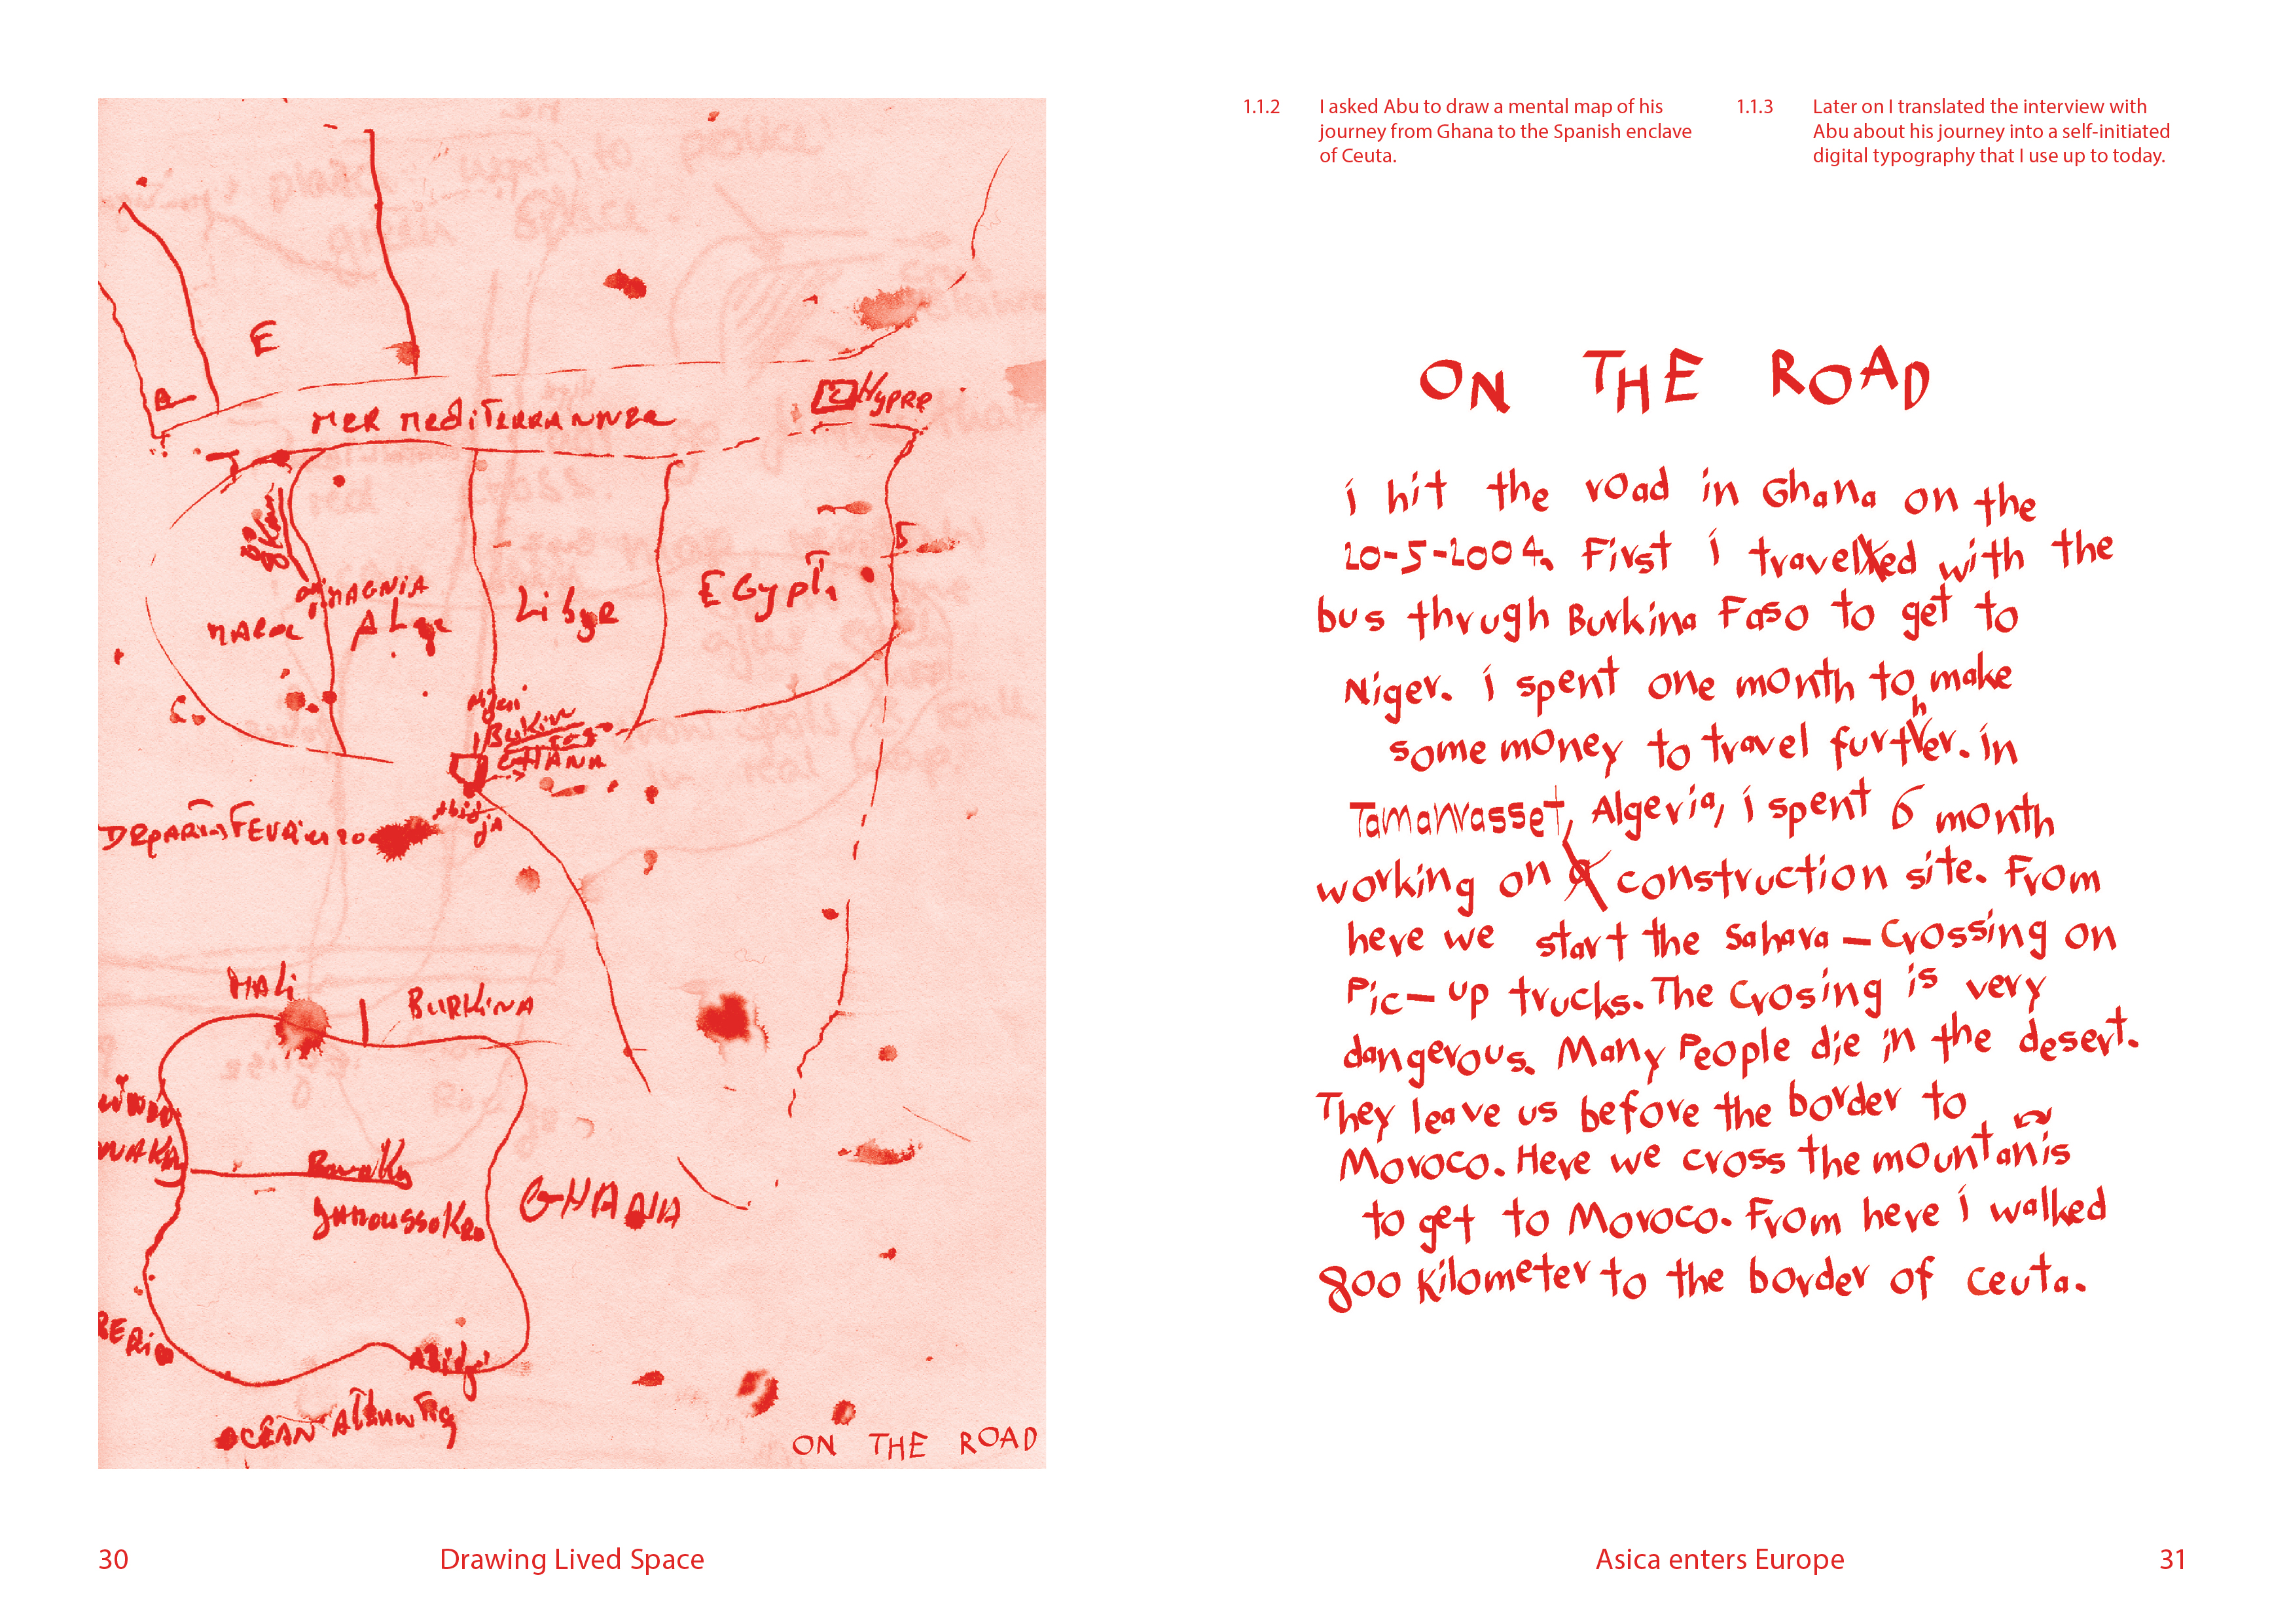 E
MER MEDITERRANNEE
HYPRE
MAGNIA
MAROC
ALge
LiByE
EGypT
Nijeri
BuRKiN
FASo
GHANA
Abidja
DEPART FEVRier 20
MALi
BURKINA
GHANA
OCEAN ATLANTIQ
ON THE ROAD
30
Drawing Lived Space
1.1.2 I asked Abu to draw a mental map of his
journey from Ghana to the Spanish enclave
of Ceuta.
1.1.3 Later on I translated the interview with
Abu about his journey into a self-initiated
digital typography that I use up to today.
ON THE ROAD
i hit the road in Ghana on the
20-5-2004. First i traveled with the
bus thrugh Burkina Faso to get to
Niger. i spent one month to make
some money to travel further. in
Tamanrasset, Algeria, i spent 6 month
working on a construction site. From
here we start the Sahara – Crossing on
Pic–up trucks. The Crosing is very
dangerous. Many People die in the desert.
They leave us before the border to
Moroco. Here we cross the mountanis
to get to Moroco. From here i walked
800 kilometer to the border of ceuta.
Asica enters Europe
31